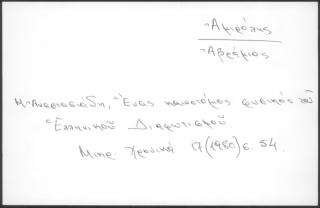 Ἀμιράλης
Ἀβράμιος
Μ. Ἀναστασιάδη, Ἕνας καινοτόμος φυσικὸς τοῦ
Ἑλληνικοῦ Διαφωτισμοῦ
Μικρ. Χρονικά 17 (1980) σ. 54.